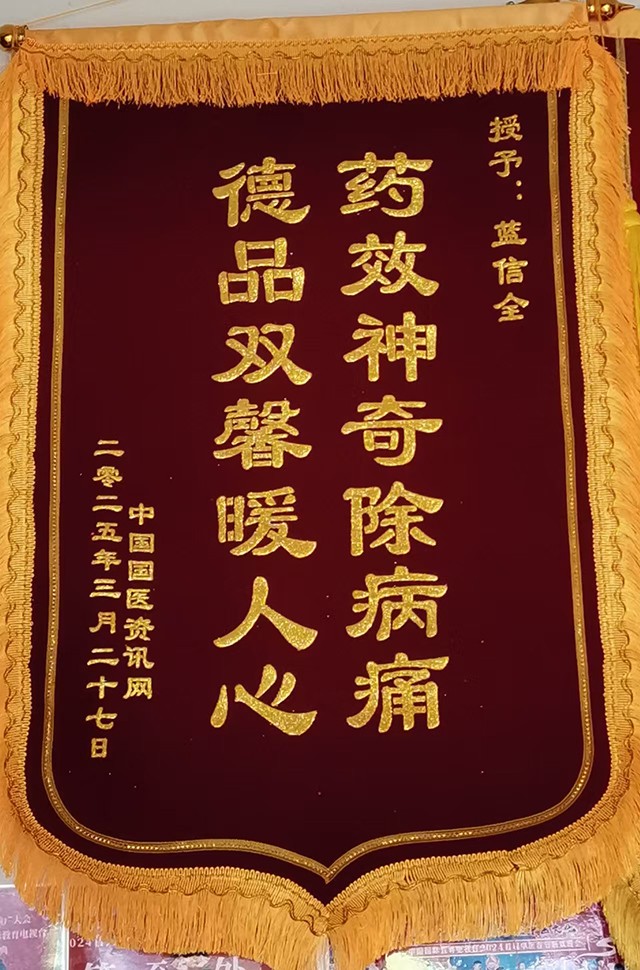 授予：蓝信全
药效神奇除病痛
德品双馨暖人心
中国国医资讯网
二零二五年三月二十七日